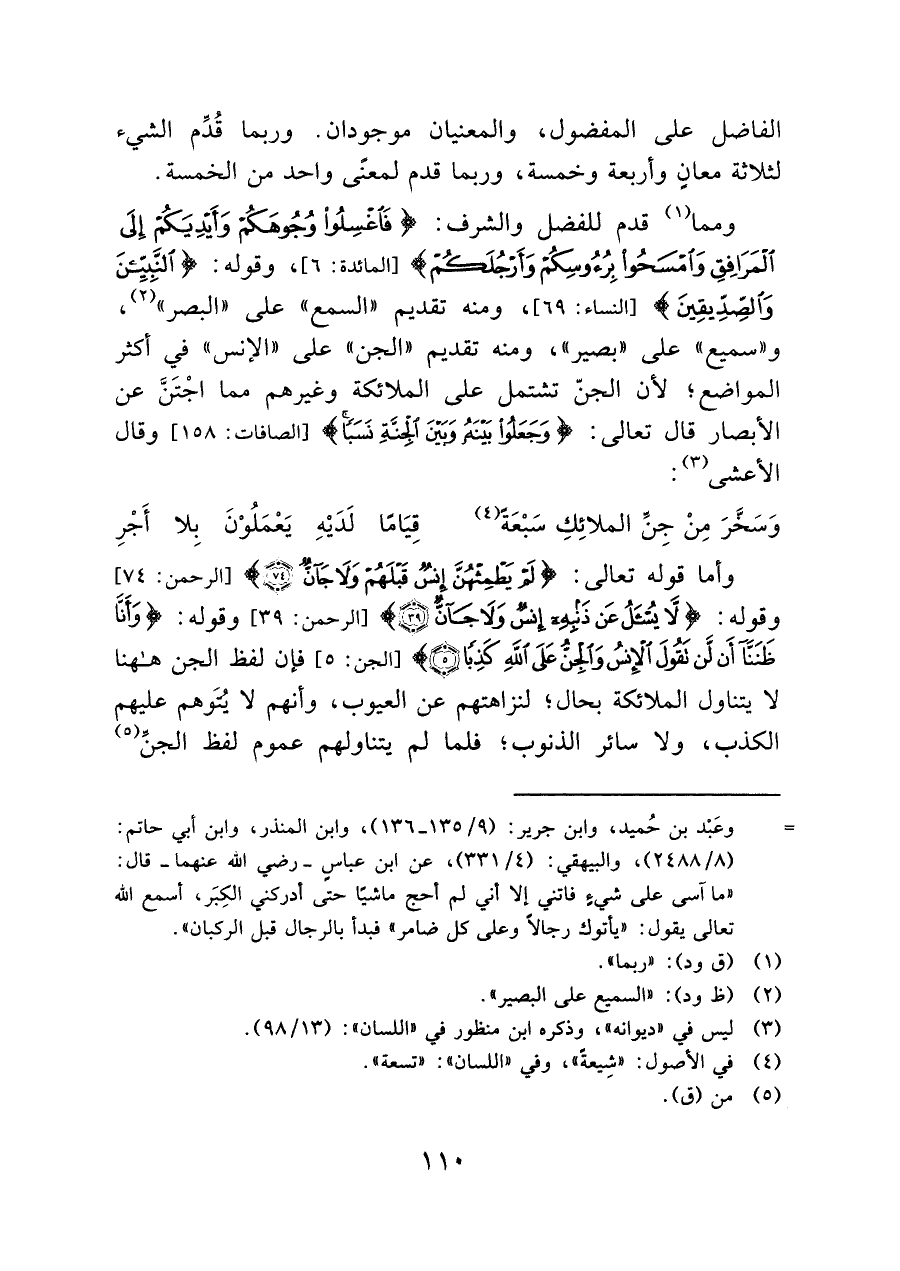 الفاضل على المفضول، والمعنيان موجودان. وربما قُدِّم الشيء
لثلاثة معانٍ وأربعة وخمسة، وربما قدم لمعنًى واحد من الخمسة.
ومما(١) قدم للفضل والشرف: ﴿فَٱغْسِلُوا۟ وُجُوهَكُمْ وَأَيْدِيَكُمْ إِلَى
ٱلْمَرَافِقِ وَٱمْسَحُوا۟ بِرُءُوسِكُمْ وَأَرْجُلَكُمْ﴾ [المائدة: ٦]، وقوله: ﴿ٱلنَّبِيِّـۧنَ
وَٱلصِّدِّيقِينَ﴾ [النساء: ٦٩]، ومنه تقديم «السمع» على «البصر»(٢)،
و«سميع» على «بصير»، ومنه تقديم «الجن» على «الإنس» في أكثر
المواضع؛ لأن الجنّ تشتمل على الملائكة وغيرهم مما اجْتَنَّ عن
الأبصار قال تعالى: ﴿وَجَعَلُوا۟ بَيْنَهُۥ وَبَيْنَ ٱلْجِنَّةِ نَسَبًا ۚ﴾ [الصافات: ١٥٨] وقال
الأعشى(٣):
وَسَخَّرَ مِنْ جِنِّ الملائِكِ سَبْعَةً(٤) قِيَامًا لَدَيْهِ يَعْمَلُوْنَ بِلا أَجْرِ
وأما قوله تعالى: ﴿لَمْ يَطْمِثْهُنَّ إِنسٌ قَبْلَهُمْ وَلَا جَآنٌّ ٧٤﴾ [الرحمن: ٧٤]
وقوله: ﴿لَّا يُسْـَٔلُ عَن ذَنۢبِهِۦٓ إِنسٌ وَلَا جَآنٌّ ٣٩﴾ [الرحمن: ٣٩] وقوله: ﴿وَأَنَّا
ظَنَنَّآ أَن لَّن نَقُولَ ٱلْإِنسُ وَٱلْجِنُّ عَلَى ٱللَّهِ كَذِبًا ٥﴾ [الجن: ٥] فإن لفظ الجن هـٰهنا
لا يتناول الملائكة بحال؛ لنزاهتهم عن العيوب، وأنهم لا يُتَوهم عليهم
الكذب، ولا سائر الذنوب؛ فلما لم يتناولهم عموم لفظ الجنِّ(٥)
= وعَبْد بن حُميد، وابن جرير: (٩/ ١٣٥ـ١٣٦)، وابن المنذر، وابن أبي حاتم:
(٨/ ٢٤٨٨)، والبيهقي: (٤/ ٣٣١)، عن ابن عباسٍ ـ رضي الله عنهما ـ قال:
«ما آسى على شيءٍ فاتني إلا أني لم أحج ماشيًا حتى أدركني الكِبَر، أسمع الله
تعالى يقول: «يأتوك رجالاً وعلى كل ضامر» فبدأ بالرجال قبل الركبان».
(١) (ق ود): «ربما».
(٢) (ظ ود): «السميع على البصير».
(٣) ليس في «ديوانه»، وذكره ابن منظور في «اللسان»: (١٣/ ٩٨).
(٤) في الأصول: «شِيعةً»، وفي «اللسان»: «تسعة».
(٥) من (ق).
١١٠